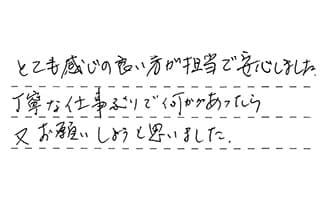 とても感じの良い方が担当で安心しました.
丁寧な仕事ぶりで何かがあったら
又お願いしようと思いました.